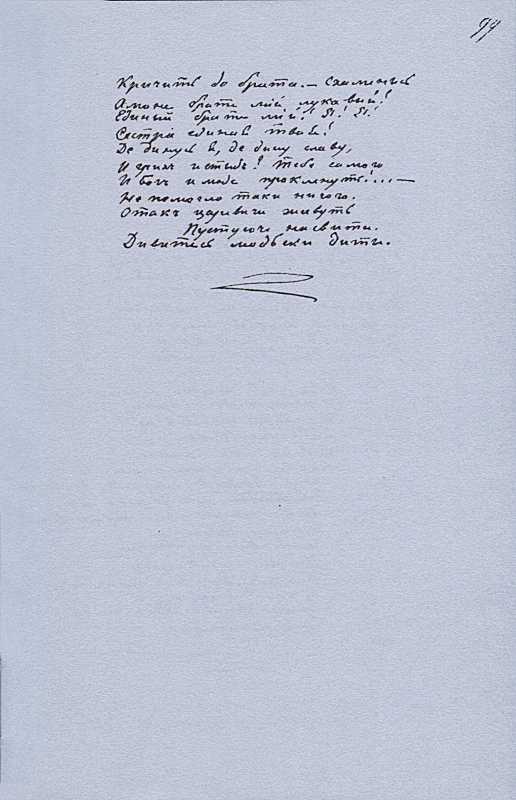 99
Кричить до брата. — Схаменись
Амоне брате мій лукавий!
Единый брате мій! Я! Я!
Сестра единая твоя!
Де динусь я, де дину славу,
И грихъ и стыдъ! Тебе самого
И Богъ и люде прокленуть!... —
Не помогло таки ничого.
Отакъ царевичи живуть
Пустуючи на свити.
Дивитесь людьски дити.